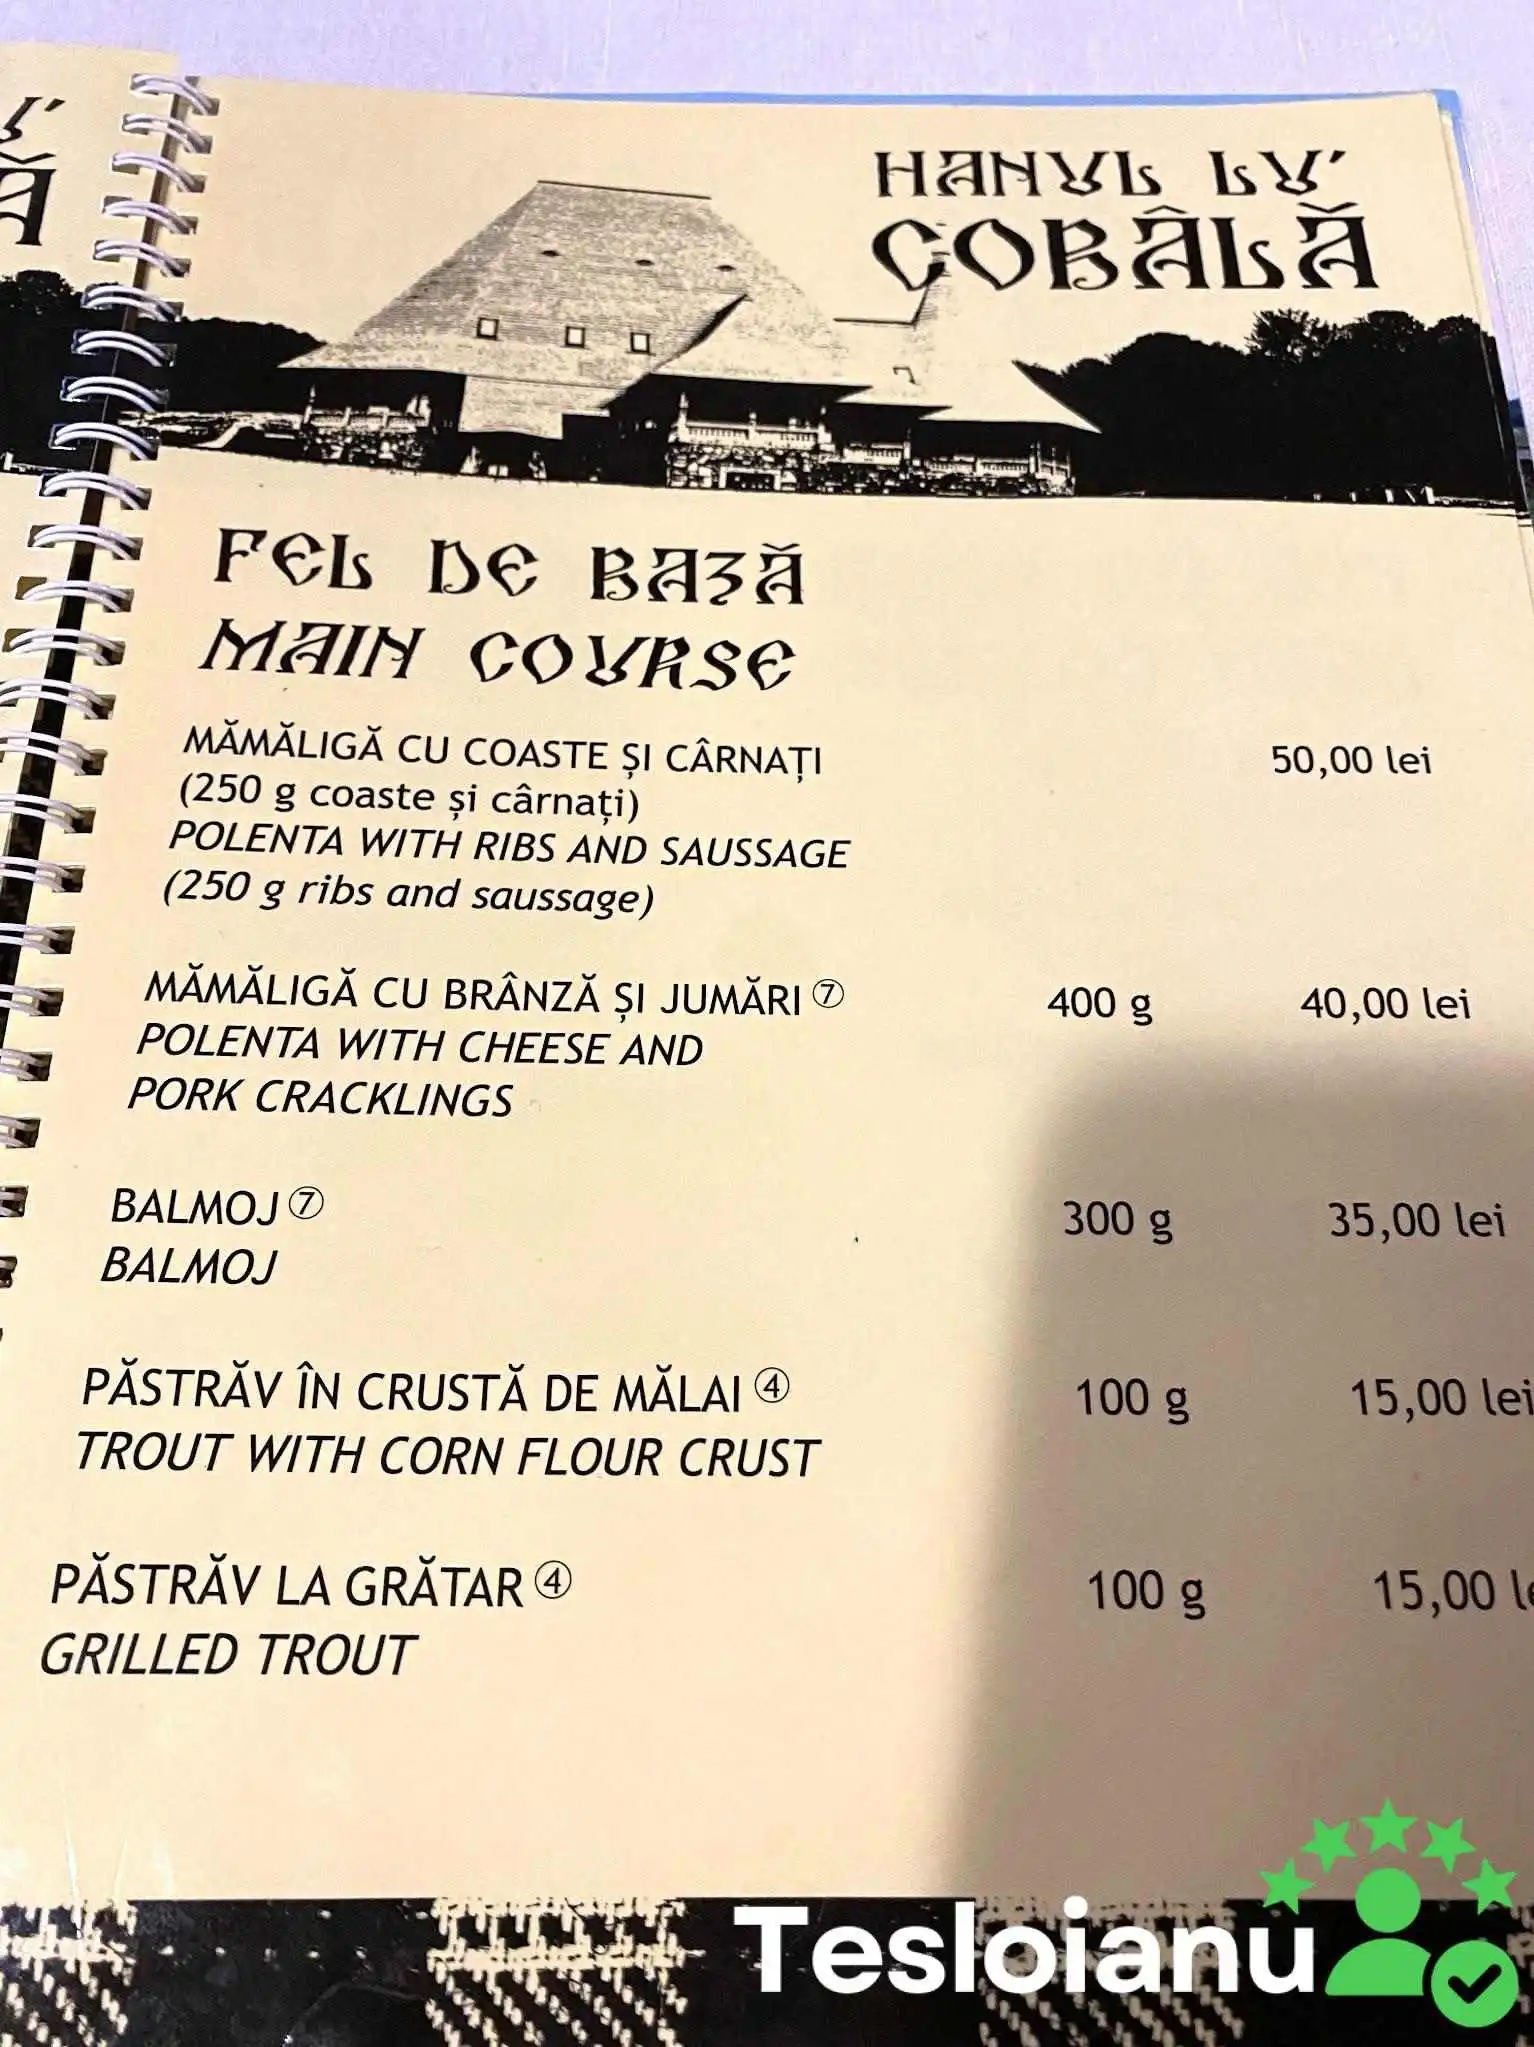 HANUL LU'
COBÂLĂ
FEL DE BAZĂ
MAIN COURSE
MĂMĂLIGĂ CU COASTE ȘI CÂRNAȚI 50,00 lei
(250 g coaste și cârnați)
POLENTA WITH RIBS AND SAUSSAGE
(250 g ribs and saussage)
MĂMĂLIGĂ CU BRÂNZĂ ȘI JUMĂRI ⑦ 400 g 40,00 lei
POLENTA WITH CHEESE AND
PORK CRACKLINGS
BALMOJ ⑦ 300 g 35,00 lei
BALMOJ
PĂSTRĂV ÎN CRUSTĂ DE MĂLAI ④ 100 g 15,00 lei
TROUT WITH CORN FLOUR CRUST
PĂSTRĂV LA GRĂTAR ④ 100 g 15,00 le
GRILLED TROUT
Tesloianu